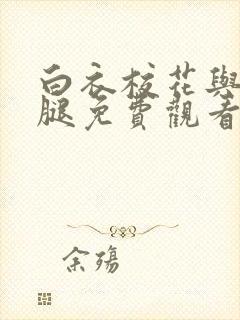 白衣校花與
腿免費觀看
余殤